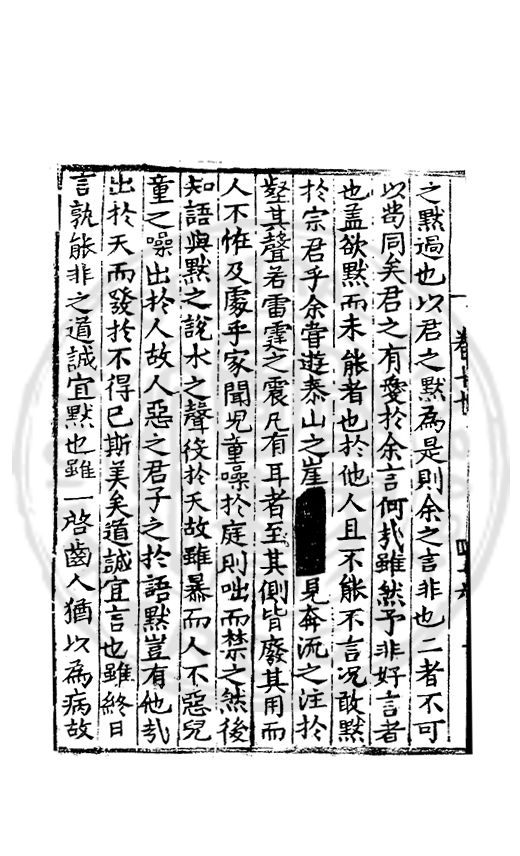 之黙過也以君之黙為是則余之言非也二者不可
以苟同矣君之有愛於余言何㢤雖然予非好言者
也盖欲黙而未能者也於他人且不能不言况敢黙
於宗君乎余甞遊泰山之崖見奔流之注於
壑其聲若雷霆之震凡有耳者至其側皆廢其用而
人不恠及處乎家聞児童噪於庭則咄而禁之然後
知語與黙之說水之聲役於天故雖暴而人不惡兒
童之噪出於人故人惡之君子之於語黙豈有他㢤
出於天而發於不得已斯美矣道誠宜言也雖終日
言孰能非之道誠宜黙也雖一啓齒人猶以為病故